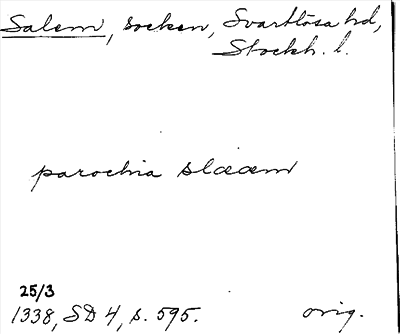 Salem, socken, Svartlösa hd,
Stockh. l.
parochia slææm
25/3
1338, SD 4, s. 595. orig.